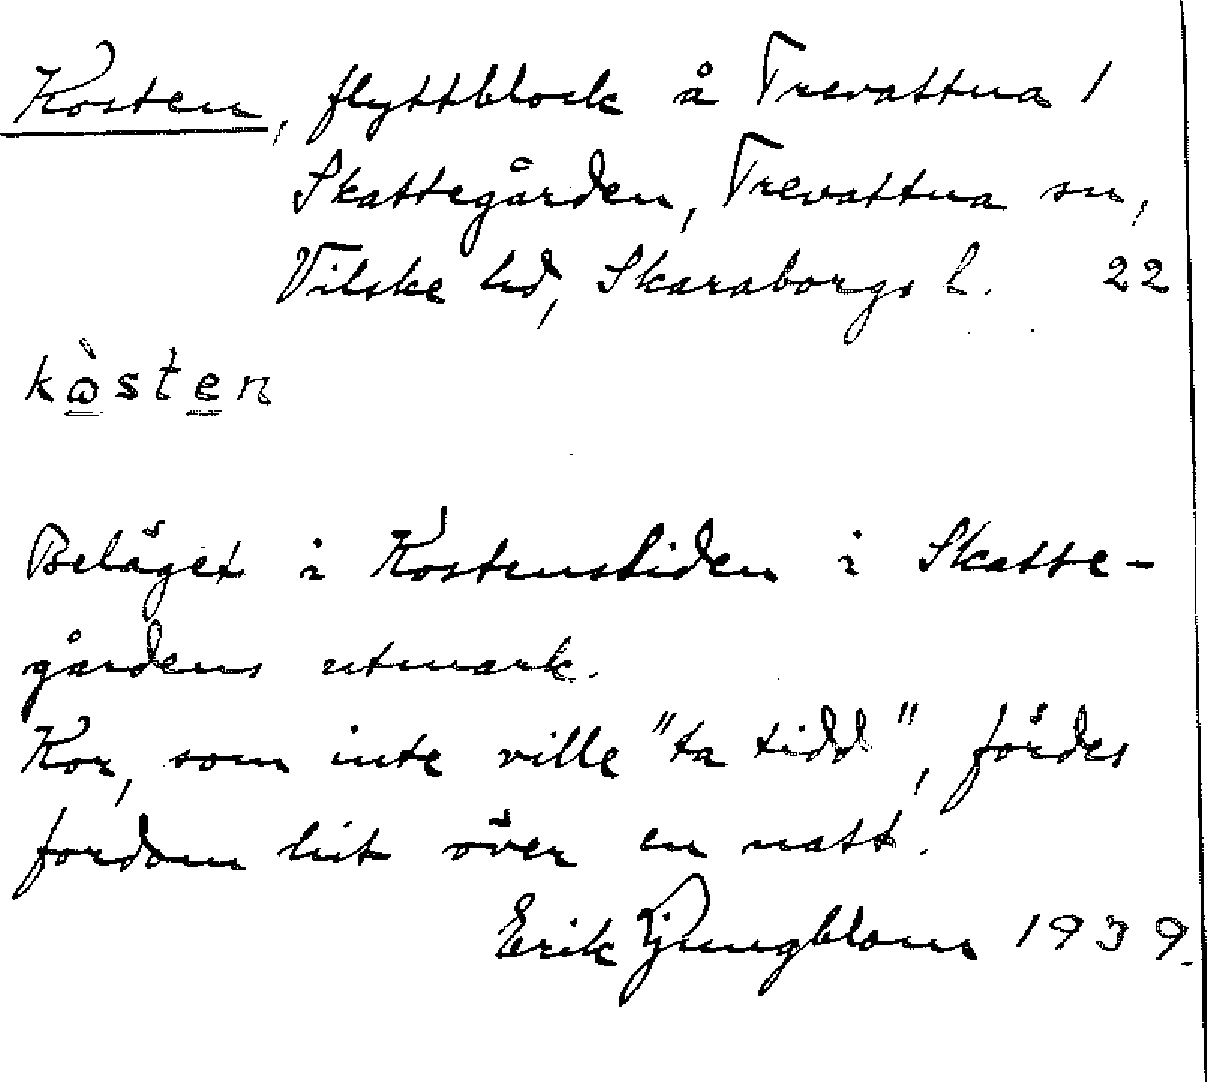 Kosten, flyttblock å Trevattna 1
Skattegården, Trevattna sn,
Vilske hd, Skaraborgs l. 22
kòsten
Beläget i Kostensliden i Skatte-
gårdens utmark.
Kor, som inte ville "ta tidd", fördes
fordom hit över en natt.
Erik Ljungblom 1939.